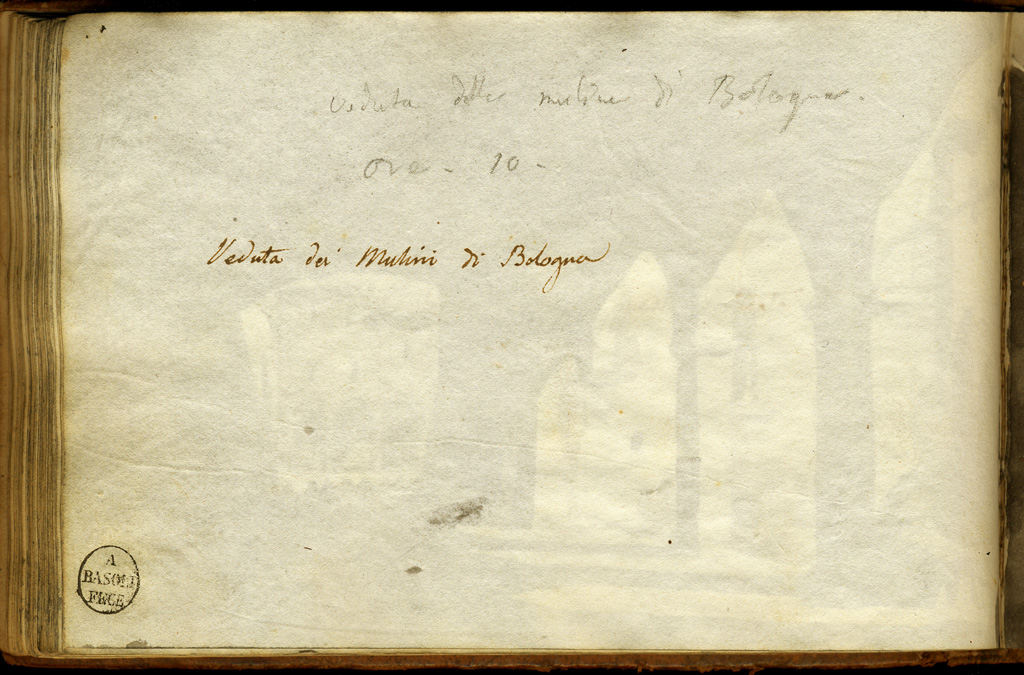 Veduta delle muline di Bologna.
Ore - 10 -
Veduta dei Mulini di Bologna
A
BASOLI
FECE